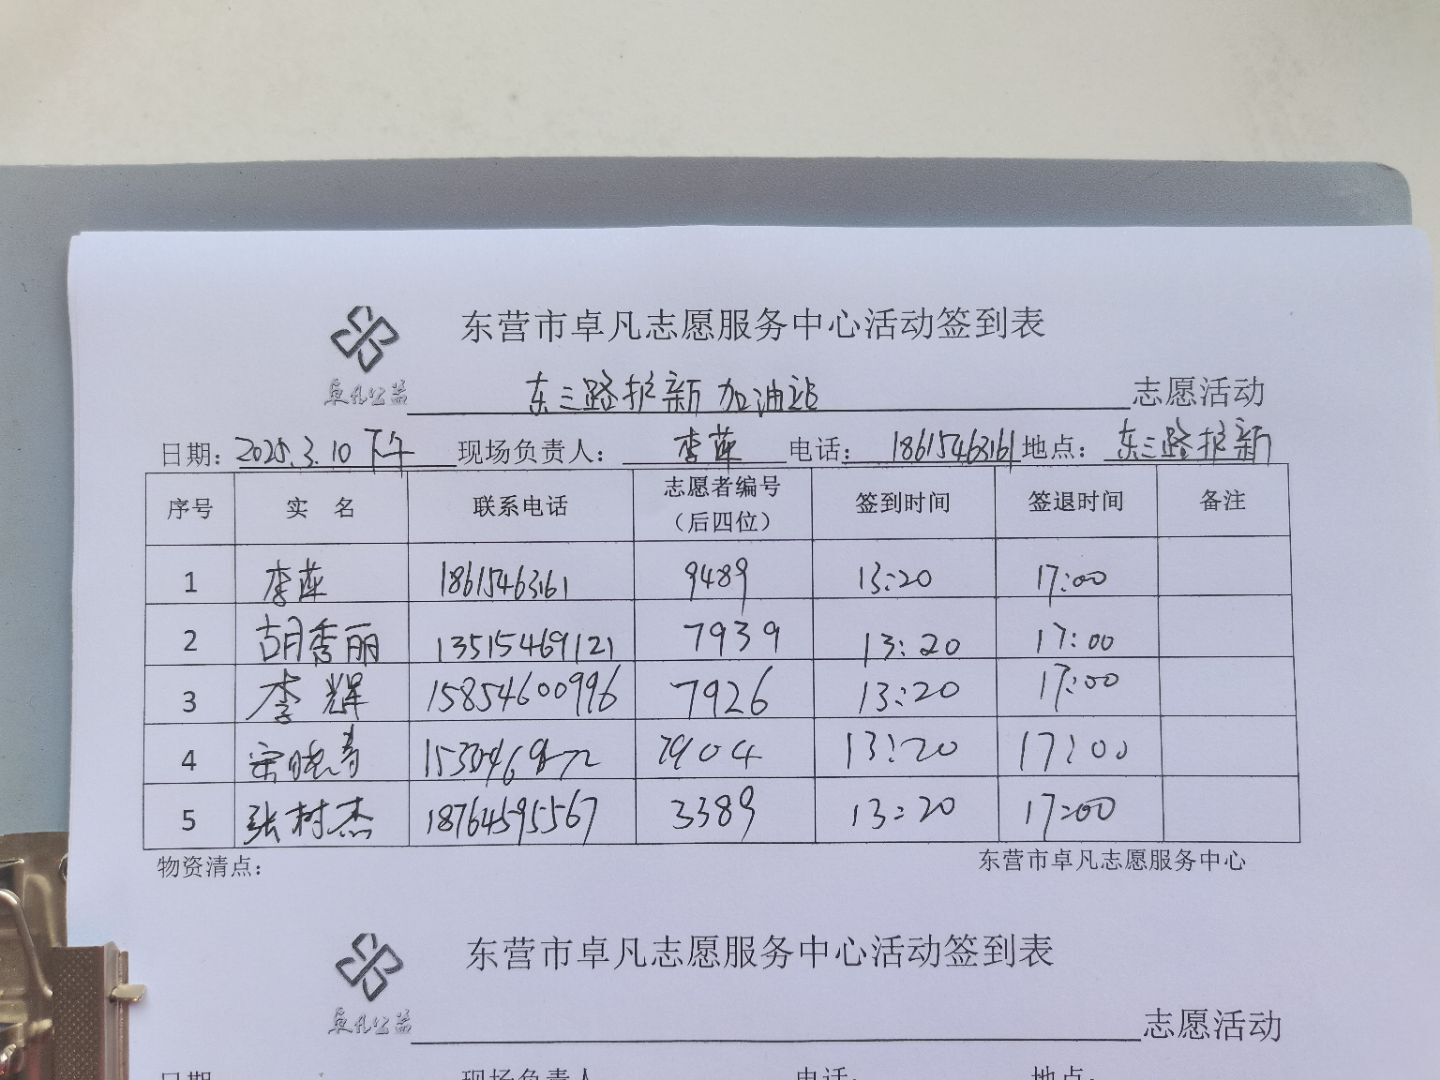 东营市卓凡志愿服务中心活动签到表
卓凡公益 东三路护新加油站 志愿活动
日期：2025.3.10下午 现场负责人：李萍 电话：18615463161 地点：东三路护新
序号 实 名 联系电话 志愿者编号（后四位） 签到时间 签退时间 备注
1 李萍 18615463161 9489 13:20 17:00
2 胡秀丽 13515469121 7939 13:20 17:00
3 李辉 15854600996 7926 13:20 17:00
4 宋晓青 7904 13:20 17:00
5 张村杰 18764595567 3389 13:20 17:00
物资清点： 东营市卓凡志愿服务中心
东营市卓凡志愿服务中心活动签到表
卓凡公益 志愿活动
日期 现场负责人 电话： 地点：